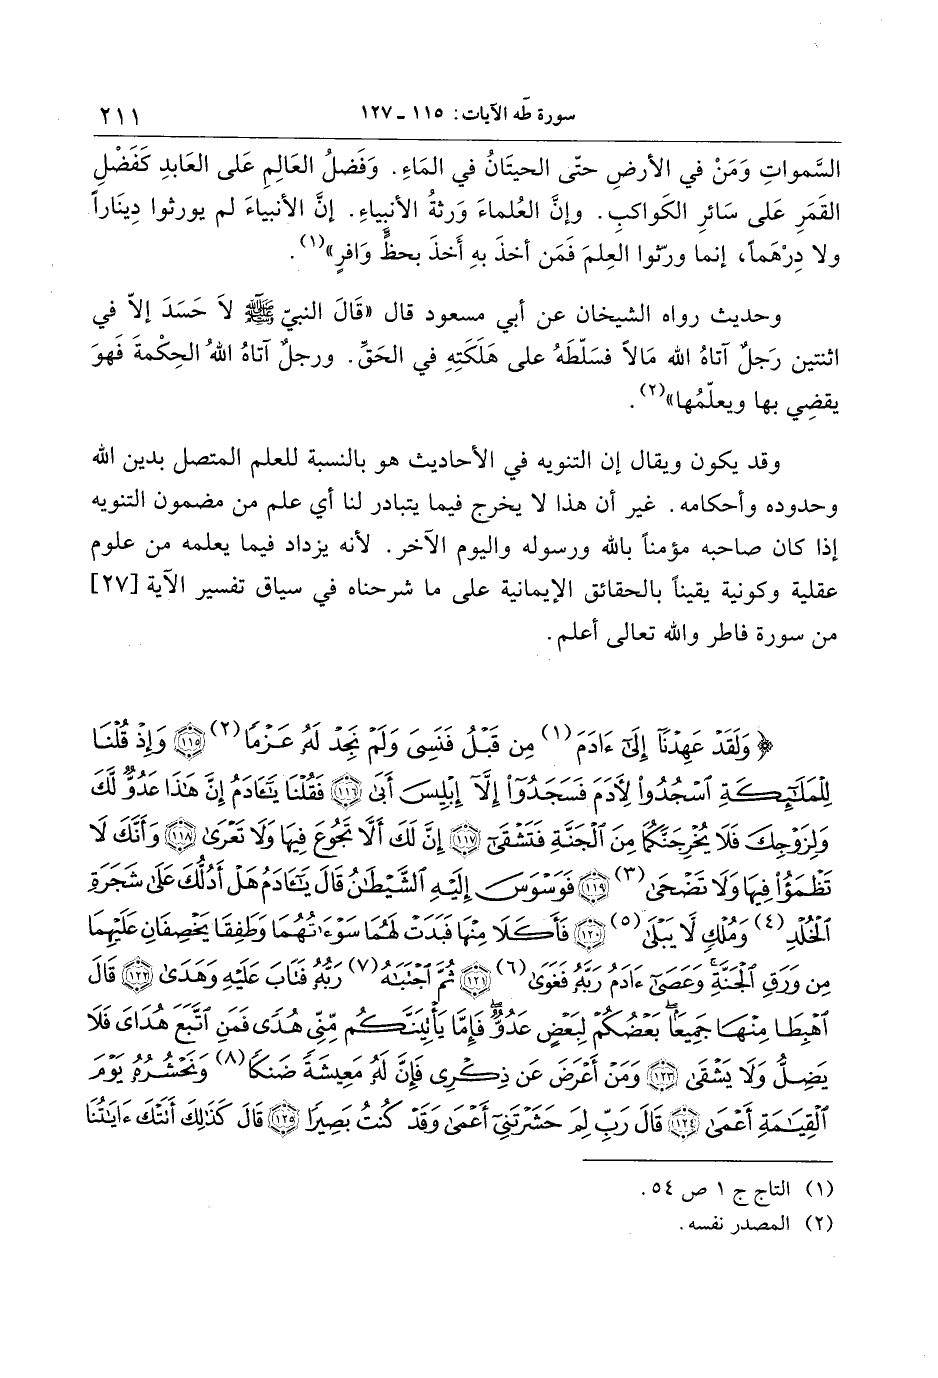 سورة طه الآيات: ١١٥ ـ ١٢٧ ٢١١
السَّمواتِ وَمَنْ في الأرضِ حتّى الحيتَانُ في المَاءِ. وَفَضلُ العَالِمِ عَلى العَابدِ كَفَضْلِ
القَمَرِ عَلى سَائرِ الكَواكبِ. وإنَّ العُلماءَ وَرثةُ الأنبياءِ. إنَّ الأنبياءَ لم يورثوا دِينَاراً
ولا دِرْهَماً، إنما ورّثوا العِلمَ فَمَن أخذَ بهِ أَخذَ بحظٍّ وَافرٍ»(١).
وحديث رواه الشيخان عن أبي مسعود قال «قَالَ النبيّ ﷺ لاَ حَسَدَ إلاّ في
اثنتين رَجلٌ آتاهُ الله مَالاً فسَلّطَهُ على هَلَكَتِهِ في الحَقِّ. ورجلٌ آتاهُ اللهُ الحِكْمةَ فَهوَ
يقضِي بها ويعلّمُها»(٢).
وقد يكون ويقال إن التنويه في الأحاديث هو بالنسبة للعلم المتصل بدين الله
وحدوده وأحكامه. غير أن هذا لا يخرج فيما يتبادر لنا أي علم من مضمون التنويه
إذا كان صاحبه مؤمناً بالله ورسوله واليوم الآخر. لأنه يزداد فيما يعلمه من علوم
عقلية وكونية يقيناً بالحقائق الإيمانية على ما شرحناه في سياق تفسير الآية [٢٧]
من سورة فاطر والله تعالى أعلم.
﴿ وَلَقَدْ عَهِدْنَآ إِلَىٰٓ ءَادَمَ (١) مِن قَبْلُ فَنَسِىَ وَلَمْ نَجِدْ لَهُۥ عَزْمًا (٢) ١١٥ وَإِذْ قُلْنَا
لِلْمَلَٰٓئِكَةِ ٱسْجُدُوا۟ لِءَادَمَ فَسَجَدُوٓا۟ إِلَّآ إِبْلِيسَ أَبَىٰ ١١٦ فَقُلْنَا يَٰٓـَٔادَمُ إِنَّ هَٰذَا عَدُوٌّ لَّكَ
وَلِزَوْجِكَ فَلَا يُخْرِجَنَّكُمَا مِنَ ٱلْجَنَّةِ فَتَشْقَىٰٓ ١١٧ إِنَّ لَكَ أَلَّا تَجُوعَ فِيهَا وَلَا تَعْرَىٰ ١١٨ وَأَنَّكَ لَا
تَظْمَؤُا۟ فِيهَا وَلَا تَضْحَىٰ (٣) ١١٩ فَوَسْوَسَ إِلَيْهِ ٱلشَّيْطَٰنُ قَالَ يَٰٓـَٔادَمُ هَلْ أَدُلُّكَ عَلَىٰ شَجَرَةِ
ٱلْخُلْدِ (٤) وَمُلْكٍ لَّا يَبْلَىٰ (٥) ١٢٠ فَأَكَلَا مِنْهَا فَبَدَتْ لَهُمَا سَوْءَٰتُهُمَا وَطَفِقَا يَخْصِفَانِ عَلَيْهِمَا
مِن وَرَقِ ٱلْجَنَّةِ ۚ وَعَصَىٰٓ ءَادَمُ رَبَّهُۥ فَغَوَىٰ (٦) ١٢١ ثُمَّ ٱجْتَبَٰهُ (٧) رَبُّهُۥ فَتَابَ عَلَيْهِ وَهَدَىٰ ١٢٢ قَالَ
ٱهْبِطَا مِنْهَا جَمِيعًۢا ۖ بَعْضُكُمْ لِبَعْضٍ عَدُوٌّ ۖ فَإِمَّا يَأْتِيَنَّكُم مِّنِّى هُدًى فَمَنِ ٱتَّبَعَ هُدَاىَ فَلَا
يَضِلُّ وَلَا يَشْقَىٰ ١٢٣ وَمَنْ أَعْرَضَ عَن ذِكْرِى فَإِنَّ لَهُۥ مَعِيشَةً ضَنكًا (٨) وَنَحْشُرُهُۥ يَوْمَ
ٱلْقِيَٰمَةِ أَعْمَىٰ ١٢٤ قَالَ رَبِّ لِمَ حَشَرْتَنِىٓ أَعْمَىٰ وَقَدْ كُنتُ بَصِيرًا ١٢٥ قَالَ كَذَٰلِكَ أَتَتْكَ ءَايَٰتُنَا
(١) التاج ج ١ ص ٥٤.
(٢) المصدر نفسه.